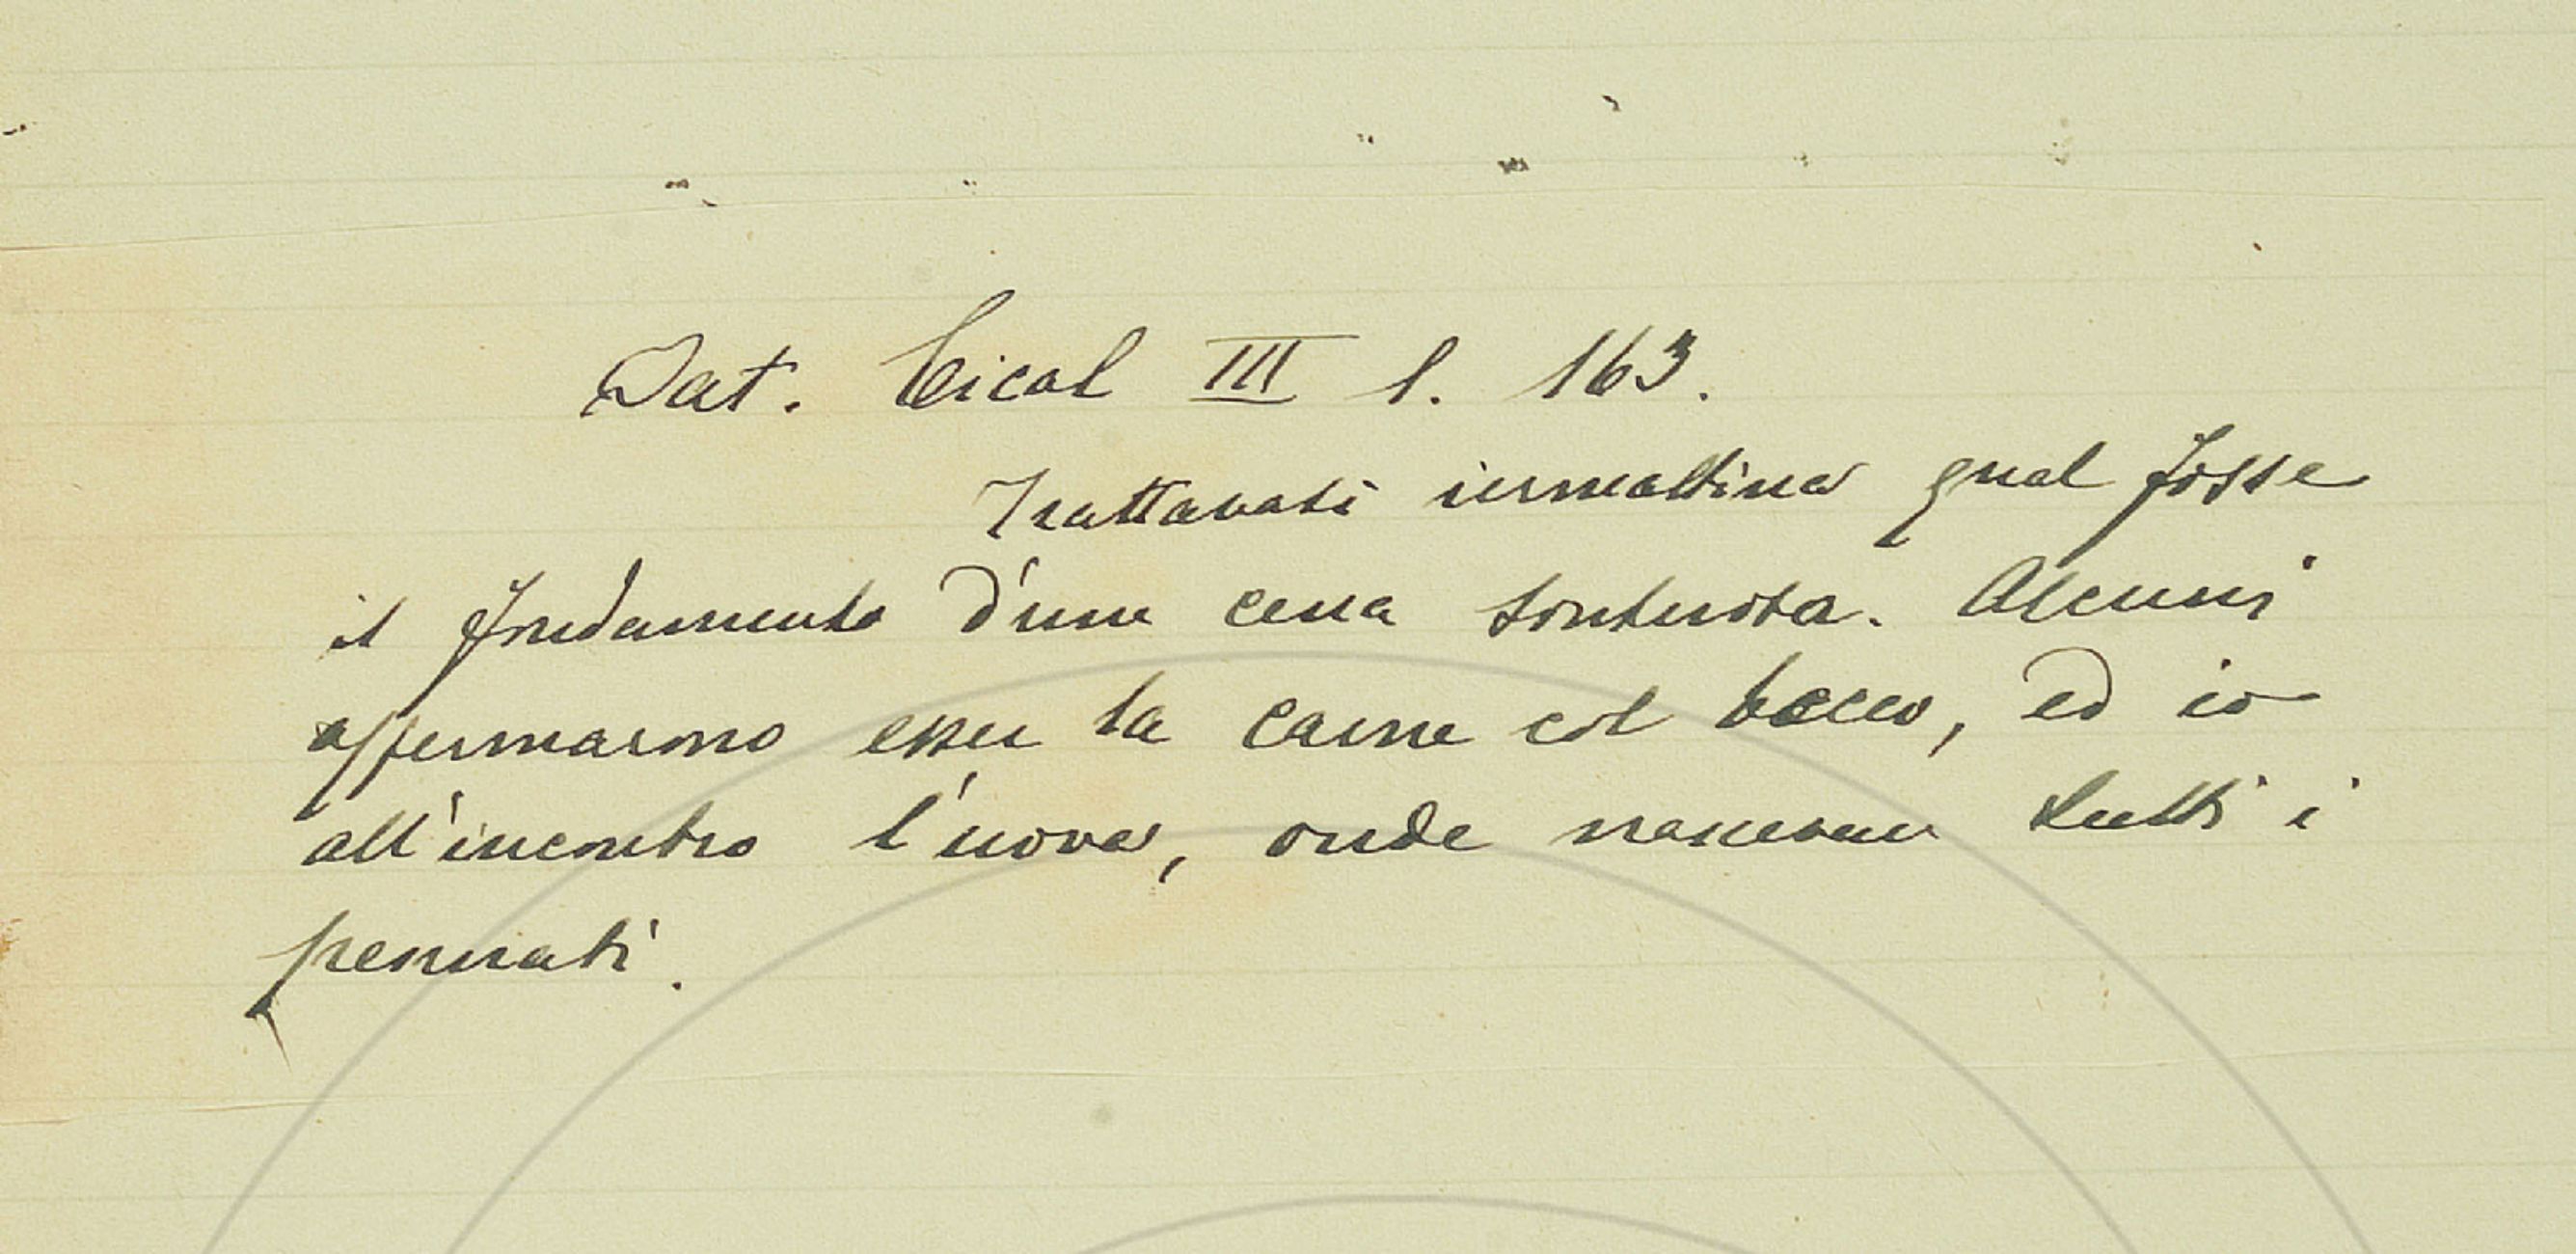 Dat. Cical III l. 163.
Trattavasi iermattina qual fosse
il fondamento d'una cena sontuosa. Alcuni
affermarono esser la carne col becco, ed io
all'incontro l'uova, onde nascevan tutti i
pennati.